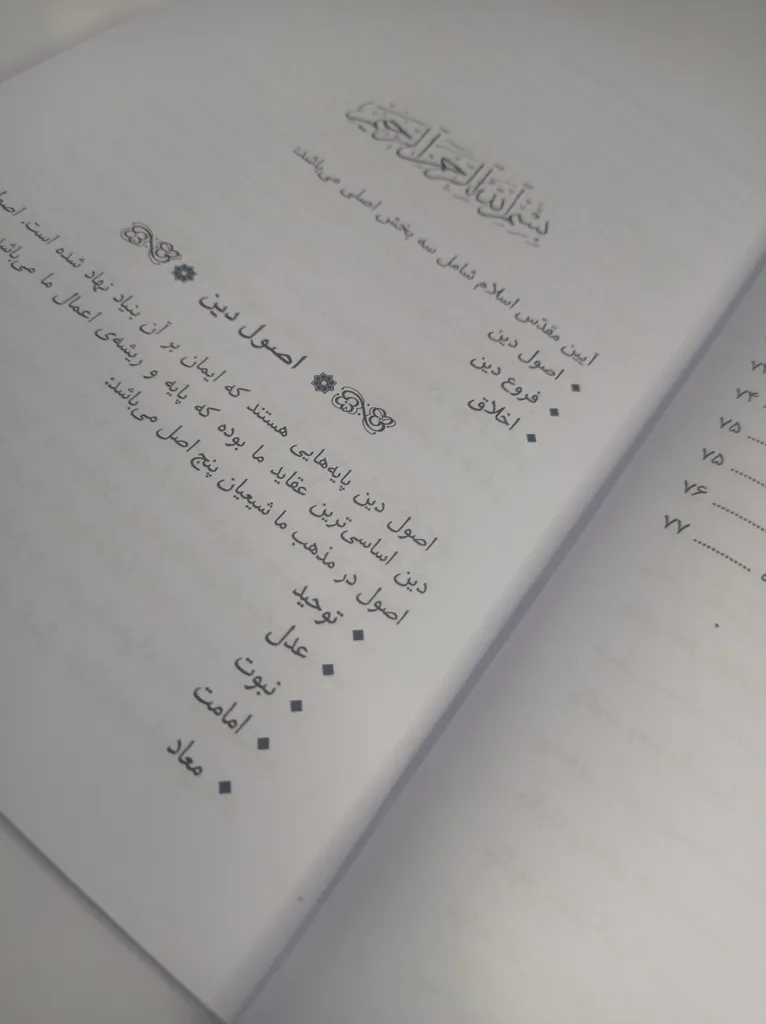 بسم الله الرحمن الرحیم
آیین مقدّس اسلام شامل سه بخش اصلی می‌باشد:
■ اصول دین
■ فروع دین
■ اخلاق
اصول دین
اصول دین پایه‌هایی هستند که ایمان بر آن بنیاد نهاد شده است. اصول
دین اساسی‌ترین عقاید ما بوده که پایه و ریشه‌ی اعمال ما می‌باشد
اصول در مذهب ما شیعیان پنج اصل می‌باشد:
■ توحید
■ عدل
■ نبوت
■ امامت
■ معاد
۷۴
۷۵
۷۵
۷۶
۷۷